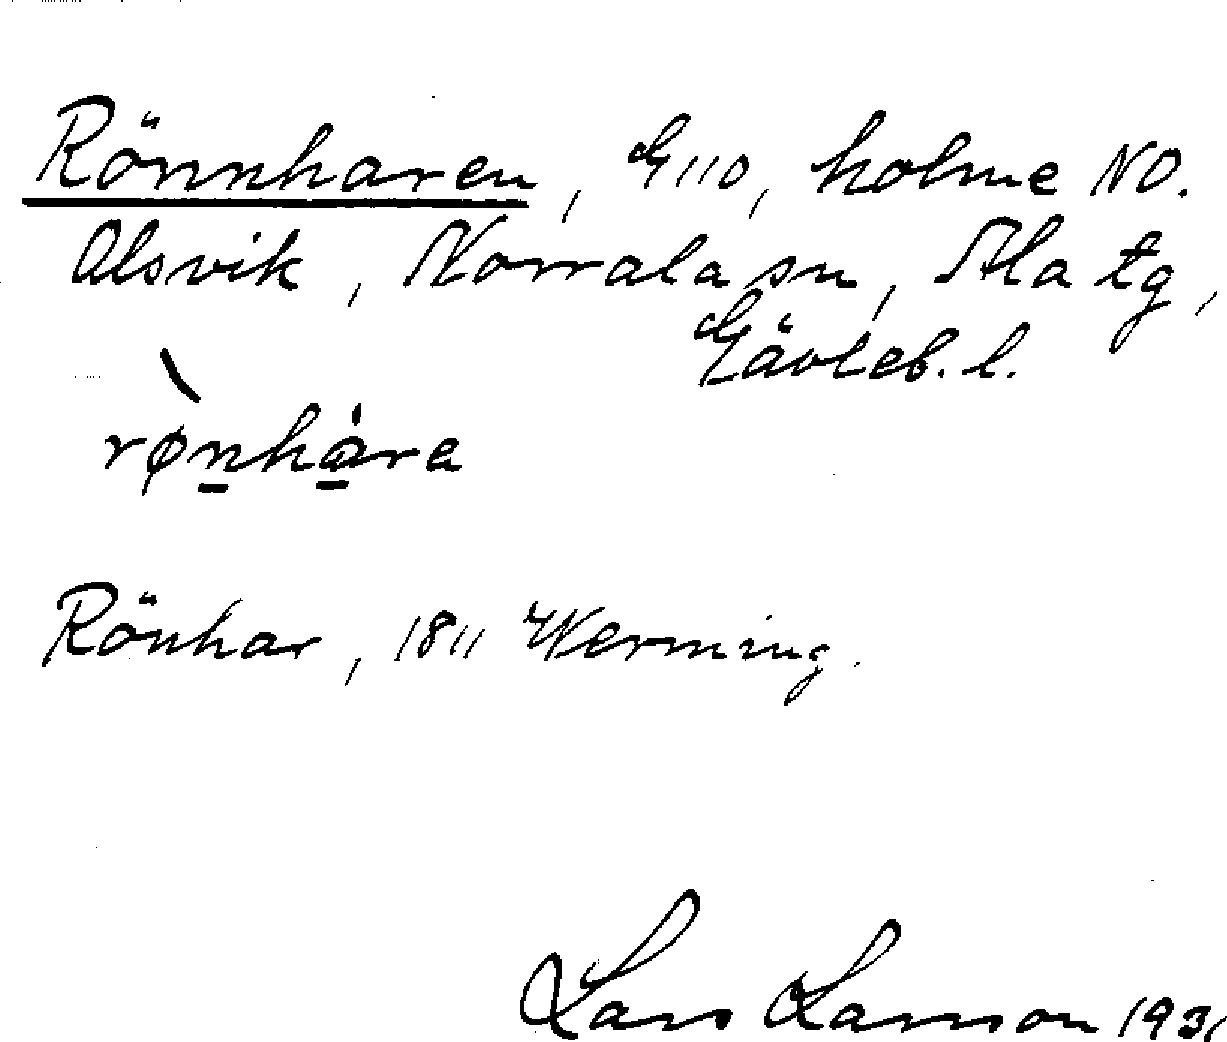 Rönnharen, G110, holme NO.
Alsvik, Norrala sn, Ala tg,
Gävleb. l.
rø̀nhára
Rönhar, 1811 Werming.
Lars Larsson 193